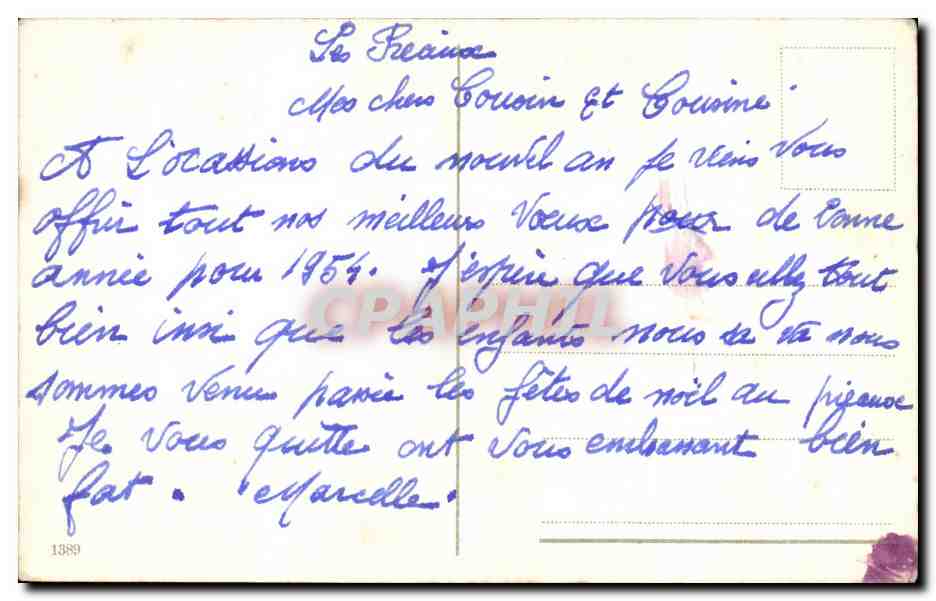 Les Préaux
Mes chers Cousin Et Cousine
A L'ocassions du nouvel an je viens vous
offrir tout nos meilleurs Vœux pour de bonne
année pour 1954. J'espère que vous allez tout
CPAPHIL
bien insi que les enfants nous sa va nous
sommes venu passée les fêtes de noël au préaux
Je vous quitte ont vous embrassant bien
fort. "Marcelle"
1389